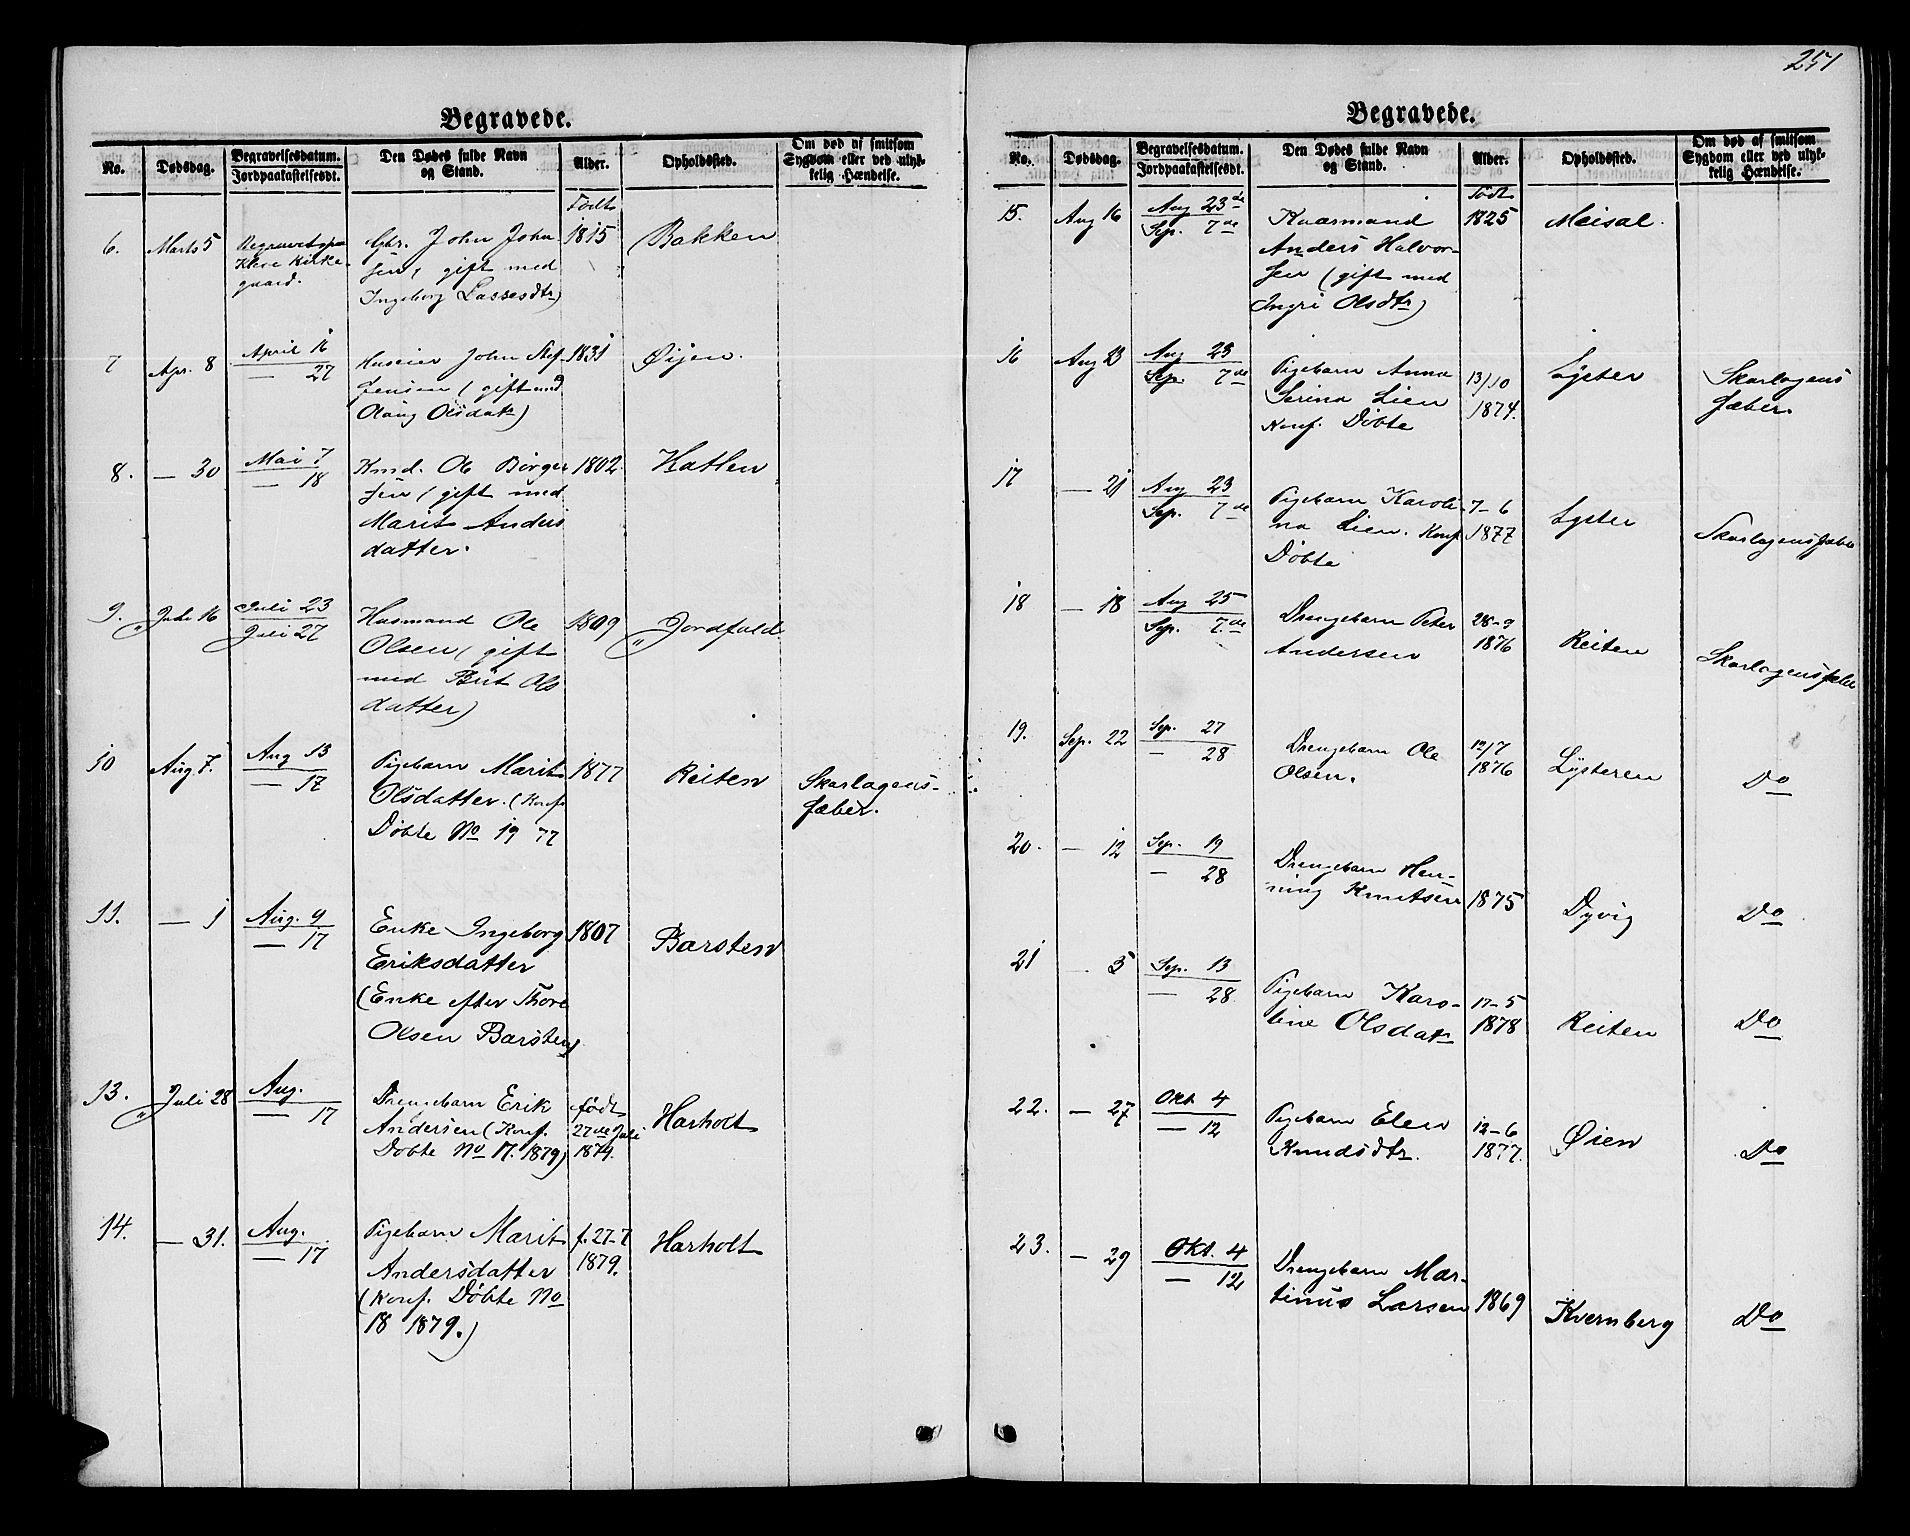 Begravede.
No. Dødsdag. Begravelsesdatum. Jordpaakastelsesdt. Den Dødes fulde Navn og Stand. Alder. Opholdssted. Om død af smitsom Sygdom eller ved ulykkelig Hændelse.
Født
6. Marts 5 Begravet paa Gbr. John John- 1815 Bakken
Kirke- sen, gift med
gaard. Ingeborg Lassesdtr)
7 Apr. 8 April 16 Huseier John Stef- 1831 Øijen.
— 27 fensen (gift med
Olaug Olsdatr)
8. — 30 Mai 7 Kmd. Ole Børger 1802. Hatlen
— 18 sen (gift med
Marit Anders
datter.
9. Juli 16 Juli 23 Husmand Ole 1809 Jordfald
Juli 27 Olsen (gift
med Brit Ols
datter)
10 Aug. 7. Aug 13 Pigebarn Marit 1877 Reiten Skarlagens-
— 17 Olsdatter. (Konf. fæber.
Döbte No 19 77
11. — 1 Aug. 9 Enke Ingeborg 1807 Barsten
— 17 Eriksdatter
(Enke efter Thore
Olsen Barsten)
13. Juli 28 Aug. Drengebarn Erik født Harholt
— 17 Andersen (Konf. 27de Juli
Döbte No 17. 1879) 1874.
14. — 31. Aug. Pigebarn Marit f. 27-7 Harholt
— 17 Andersdatter 1879.
(Konf. Döbte No
18 1879.)
251
Begravede.
No. Dødsdag. Begravelsesdatum. Jordpaakastelsesdt. Den Dødes fulde Navn og Stand. Alder. Opholdssted. Om død af smitsom Sygdom eller ved ulykkelig Hændelse.
Født
15. Aug 16 Aug 23de Kaarmand 1825 Meisal.
Sep. 7de Anders Halvor-
sen (gift med
Ingri Olsdtr)
16 Aug 23 Pigebarn Anna 13/10 Lyster Skarlagens
Sep. 7de Serina Lien 1874. fæber.
Konf. Döbte
17 — 21 Aug 23 Pigebarn Karoli- 7-6 Lyster Skarlagensfæber
Sep. 7de na Lien. Konf 1877
Döbte
18 — 18 Aug 25 Drengebarn Peter 28-9 Reiten Skarlagensfæber
Sep. 7.de Andersen 1876
19. Sep. 22 Sep. 27 Drengebarn Ole 12/7 Lysteren Do
— 28 Olsen. 1876
20. — 12 Sep. 19 Drengebarn Hen-
— 28 ning Knutsen 1875 Dyvig Do
21 — 5 Sep. 13 Pigebarn Karo- 17-5
— 28. line Olsdatr 1878 Reiten Do
22. — 27 Okt 4 Pigebarn Elen 12-6 Øien Do
— 12 Knudsdtr. 1877.
23. — 29 Okt. 4 Drengebarn Mar-
— 12 tinus Larsen 1869 Kvernberg Do